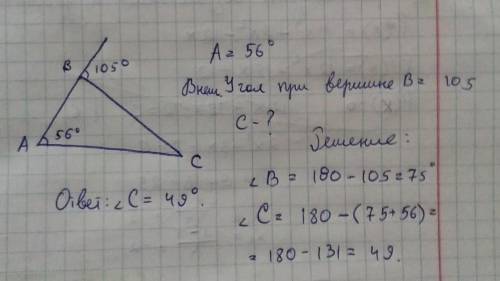 B 105°
A 56°
C
Ответ: ∠C = 49°.
A = 56°
Внеш. Угол при вершине B = 105
C - ?
Решение:
∠B = 180 - 105 = 75°
∠C = 180 - (75 + 56) =
= 180 - 131 = 49.